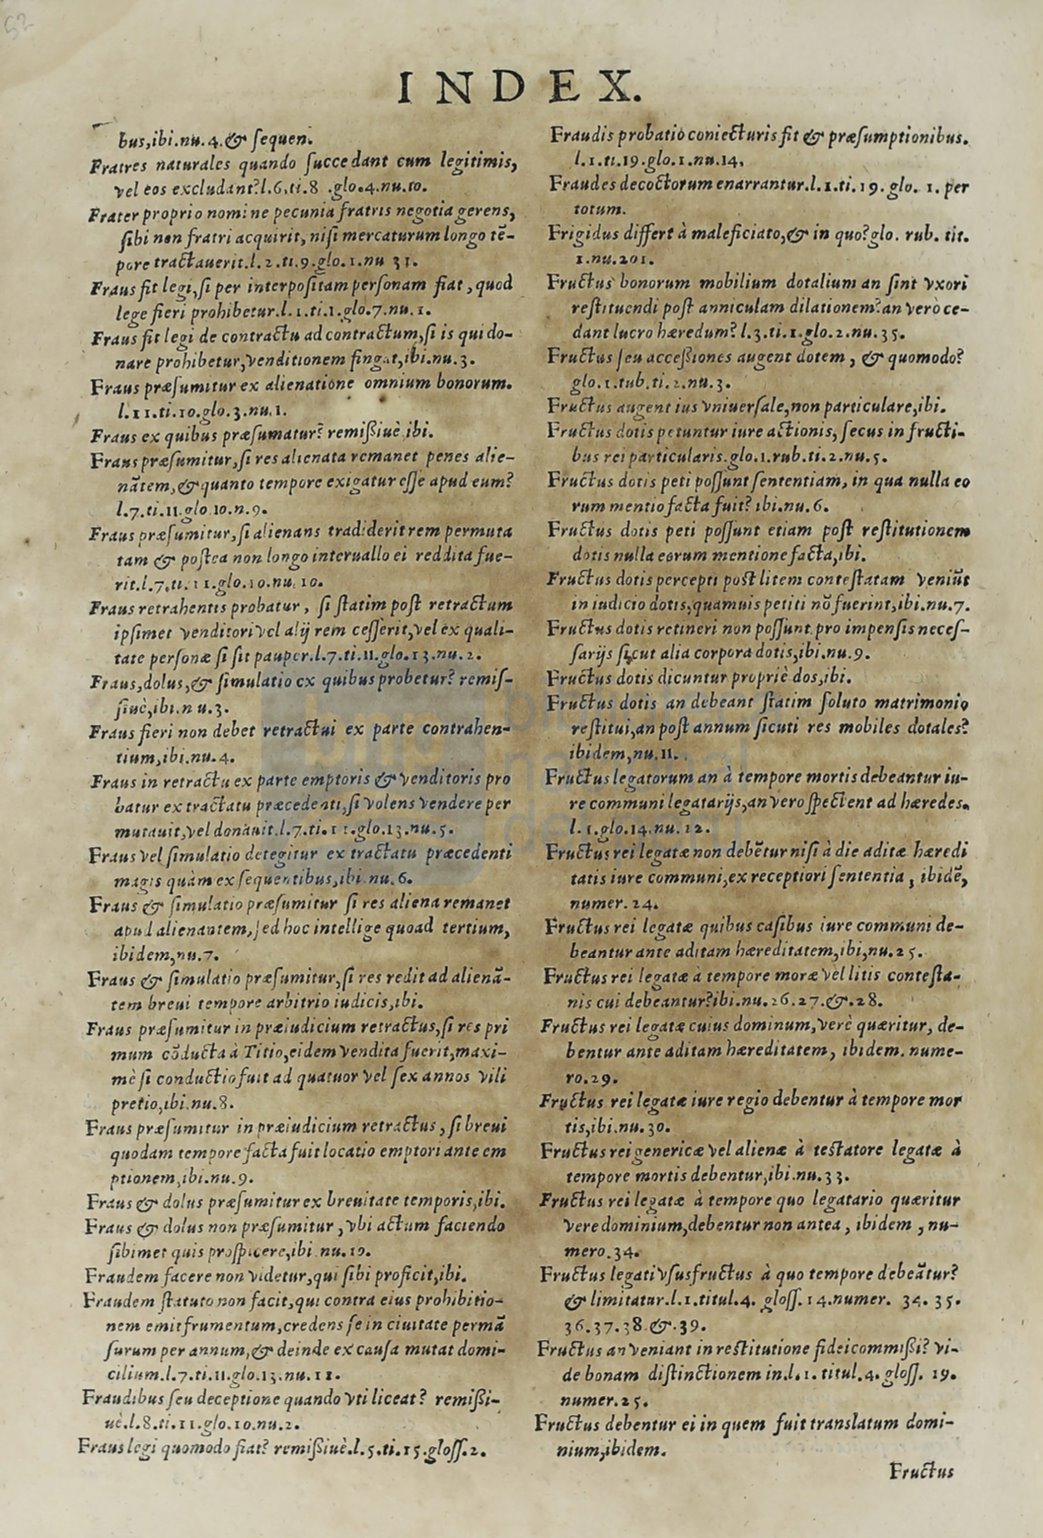 INDEX.
bus,ibi.nu.4.& sequen.
Fratres naturales quando succedant cum legitimis,
vel eos excludant?l.6.ti.8 .glo.4.nu.10.
Frater proprio nomine pecunia fratris negotia gerens,
sibi non fratri acquirit, nisi mercaturum longo tẽ-
pore tractauerit.l.2.ti.9.glo.1.nu 31.
Fraus fit legi,si per interpositam personam fiat,quod
lege fieri prohibetur.l.1.ti.1.glo.7.nu.1.
Fraus fit legi de contractu ad contractum,si is qui do-
nare prohibetur,venditionem fingat,ibi.nu.3.
Fraus præsumitur ex alienatione omnium bonorum.
l.11.ti.10.glo.3.nu.1.
Fraus ex quibus præsumatur? remissiuè ibi.
Fraus præsumitur,si res alienata remanet penes alie-
nãtem,& quanto tempore exigatur esse apud eum?
l.7.ti.11.glo.10.n.9.
Fraus præsumitur,si alienans tradiderit rem permuta
tam & postea non longo interuallo ei reddita fue-
rit.l.7.ti.11.glo.10.nu.10.
Fraus retrahentis probatur, si statim post retractum
ipsimet venditori vel alij rem cesserit,vel ex quali-
tate personæ si sit pauper.l.7.ti.11.glo.13.nu.2.
Fraus,dolus,& simulatio ex quibus probetur? remis-
siuè,ibi.nu.3.
Fraus fieri non debet retractui ex parte contrahen-
tium,ibi.nu.4.
Fraus in retractu ex parte emptoris & venditoris pro
batur ex tractatu præcedenti,si volens vendere per
mutauit,vel donauit.l.7.ti.11.glo.13.nu.5.
Fraus vel simulatio detegitur ex tractatu præcedenti
magis quàm ex sequentibus,ibi nu.6.
Fraus & simulatio præsumitur si res aliena remanet
apud alienantem,sed hoc intellige quoad tertium,
ibidem,nu.7.
Fraus & simulatio præsumitur,si res redit ad alienã-
tem breui tempore arbitrio iudicis,ibi.
Fraus præsumitur in præiudicium retractus,si res pri
mum cõducta à Titio,eidem vendita fuerit,maxi-
mè si conductio fuit ad quatuor vel sex annos vili
pretio,ibi.nu.8.
Fraus præsumitur in præiudicium retractus,si breui
quodam tempore facta fuit locatio emptori ante em
ptionem,ibi.nu.9.
Fraus & dolus præsumitur ex breuitate temporis,ibi.
Fraus & dolus non præsumitur,vbi actum faciendo
sibimet quis prospicere,ibi nu.10.
Fraudem facere non videtur,qui sibi proficit,ibi.
Fraudem statuto non facit,qui contra eius prohibitio-
nem emit frumentum,credens se in ciuitate permã
surum per annum,& deinde ex causa mutat domi-
cilium.l.7.ti.11.glo.13.nu.11.
Fraudibus seu deceptione quando vti liceat? remissi-
uè.l.8.ti.11.glo.10.nu.2.
Fraus legi quomodo fiat? remissiuè.l.5.ti.15.gloss.2.
Fraudis probatio coniecturis fit & præsumptionibus.
l.1.ti.19.glo.1.nu.14.
Fraudes decoctorum enarrantur.l.1.ti.19.glo. 1. per
totum.
Frigidus differt à maleficiato,& in quo?glo. rub. tit.
1.nu.201.
Fructus bonorum mobilium dotalium an sint vxori
restituendi post anniculam dilationem?an verò ce-
dant lucro hæredum? l.3.ti.1.glo.2.nu.35.
Fructus seu accessiones augent dotem, & quomodo?
glo.1.rub.ti.2.nu.3.
Fructus augent ius vniuersale,non particulare,ibi.
Fructus dotis petuntur iure actionis, secus in fructi-
bus rei particularis.glo.1.rub.ti.2.nu.5.
Fructus dotis peti possunt sententiam, in qua nulla eo
rum mentio facta fuit? ibi.nu.6.
Fructus dotis peti possunt etiam post restitutionem
dotis nulla eorum mentione facta,ibi.
Fructus dotis percepti post litem contestatam veniũt
in iudicio dotis,quamuis petiti nõ fuerint,ibi.nu.7.
Fructus dotis retineri non possunt pro impensis neces-
sarijs sicut alia corpora dotis,ibi.nu.9.
Fructus dotis dicuntur propriè dos,ibi.
Fructus dotis an debeant statim soluto matrimonio
restitui,an post annum sicuti res mobiles dotales?
ibidem,nu.11.
Fructus legatorum an à tempore mortis debeantur iu-
re communi legatarijs,an vero spectent ad hæredes.
l.1.glo.14.nu.12.
Fructus rei legatæ non debẽtur nisi à die aditæ hæredi
tatis iure communi,ex receptiori sententia, ibidẽ,
numer.24.
Fructus rei legatæ quibus casibus iure communi de-
beantur ante aditam hæreditatem,ibi,nu.25.
Fructus rei legatæ à tempore moræ vel litis contesta-
nis cui debeantur?ibi.nu.26.27.&.28.
Fructus rei legatæ cuius dominum,verè quæritur, de-
bentur ante aditam hæreditatem, ibidem. nume-
ro.29.
Fructus rei legatæ iure regio debentur à tempore mor
tis,ibi.nu.30.
Fructus rei genericæ vel alienæ à testatore legatæ à
tempore mortis debentur,ibi.nu.33.
Fructus rei legatæ à tempore quo legatario quæritur
vere dominium,debentur non antea, ibidem ,nu-
mero.34.
Fructus legati vsusfructus à quo tempore debeãtur?
& limitatur.l.1.titul.4. gloss. 14.numer. 34. 35.
36.37.38.&.39.
Fructus an veniant in restitutione fideicommissi? vi-
de bonam distinctionem in.l.1.titul.4.gloss. 19.
numer.25.
Fructus debentur ei in quem fuit translatum domi-
nium,ibidem.
Fructus